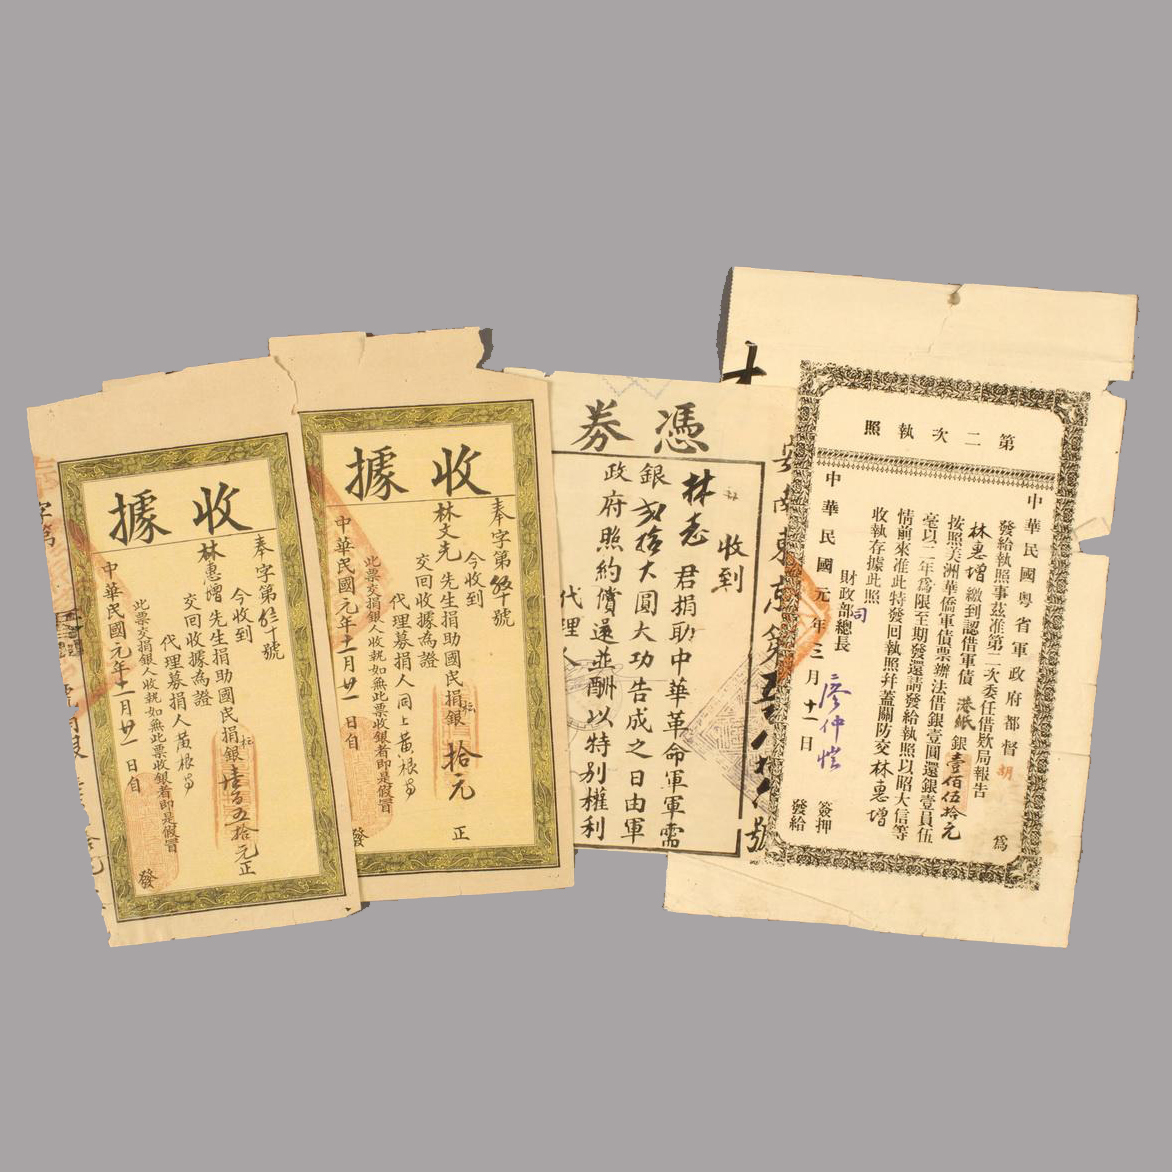 第二次執照
中華民國粵省軍政府都督胡 為
發給執照事茲准第二次委任借欵局報告
林惠增繳到認借軍債港紙銀壹佰伍拾元
按照美洲華僑軍債票辦法借銀壹圓還銀壹員伍
毫以二年為限至期發還請發給執照以昭大信等
情前來准此特發回執照幷蓋關防交林惠增
收執存據此照
財政部總長 廖仲愷 簽押
司
中華民國元年三月十一日 發給
憑券
收到
君捐助中華革命軍軍需
銀 拾大圓大功告成之日由軍
政府照約償還並酬以特别權利
代理人
收據
奉字第 號
今收到
林文先先生捐助國民捐銀拾元正
交回收據為證
代理募捐人同上黃根
此票交捐銀人收執如無此票收銀者即是假冒
中華民國元年十一月廿一日自 發
收據
奉字第 十號
今收到
林惠增先生捐助國民捐銀壹百五拾元正
交回收據為證
代理募捐人黃根
此票交捐銀人收執如無此票收銀者即是假冒
中華民國元年十一月廿一日自 發
字第